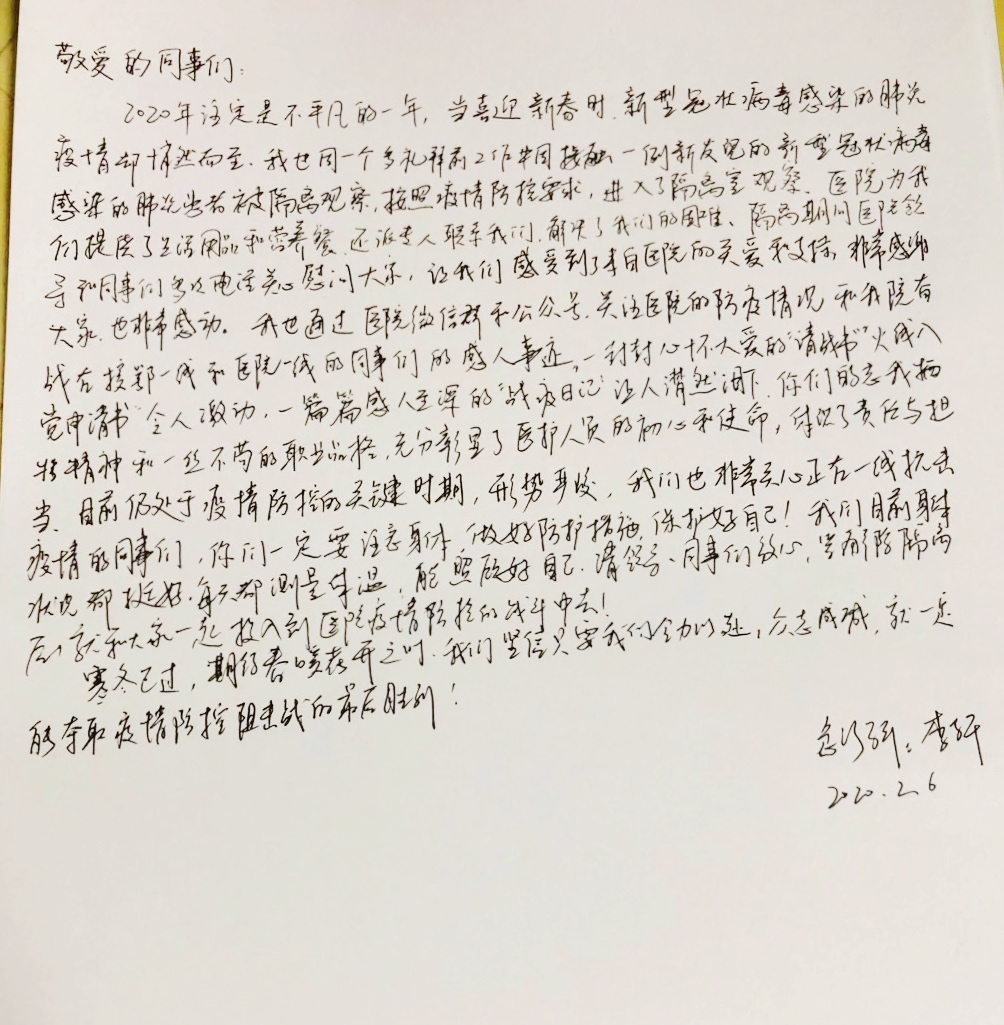 敬爱的同事们:
2020年注定是不平凡的一年，当喜迎新春时.新型冠状病毒感染的肺炎
疫情却悄然而至.我也因一个多礼拜前工作中因接触一例新发现的新型冠状病毒
感染的肺炎患者被隔离观察,按照疫情防控要求，进入了隔离室观察.医院为我
们提供了生活用品和营养餐.还派专人联系我们.解决了我们的困难、隔离期间医院领
导和同事们多次电话关心慰问大家，让我们感受到了来自医院的关爱和支持.非常感谢
大家.也非常感动。我也通过医院微信群和公众号.关注医院的防疫情况和我院奋
战在援鄂一线和医院一线的同事们的感人事迹,一封封心怀大爱的"请战书"火线入
党申请书"令人激动,一篇篇感人至深的"战疫日记"让人潸然泪下.你们的忘我拼
搏精神和一丝不苟的职业品格,充分彰显了医护人员的初心和使命，体现了责任与担
当、目前仍处于疫情防控的关键时期，形势严峻，我们也非常关心正在一线抗击
疫情的同事们，你们一定要注意身体,做好防护措施,保护好自己！我们目前身体
状况都挺好.每天都测量体温，能照顾好自己.请领导、同事们放心,等解除隔离
后,就和大家一起投入到医院疫情防控的战斗中去！
寒冬已过，期待春暖花开之时.我们坚信只要我们全力以赴，众志成城,就一定
能夺取疫情防控阻击战的最后胜利！
李妍
2020.2.6